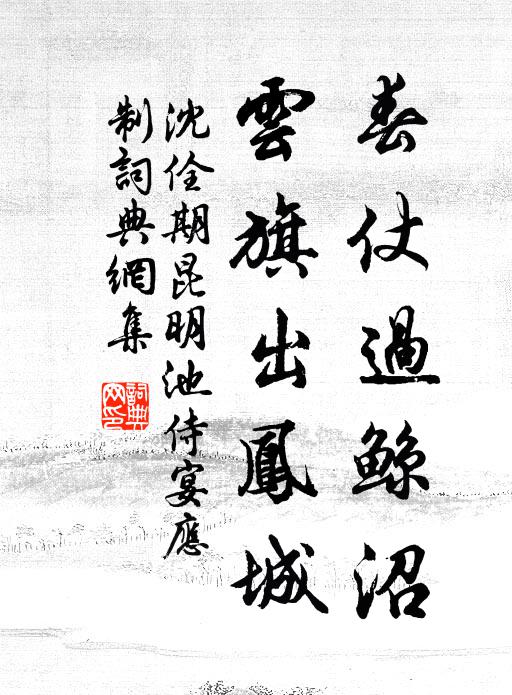 春仗過鯨沼
雲旗出鳳城
沈佺期昆明池侍宴應
制詞典網集
詞典
网印